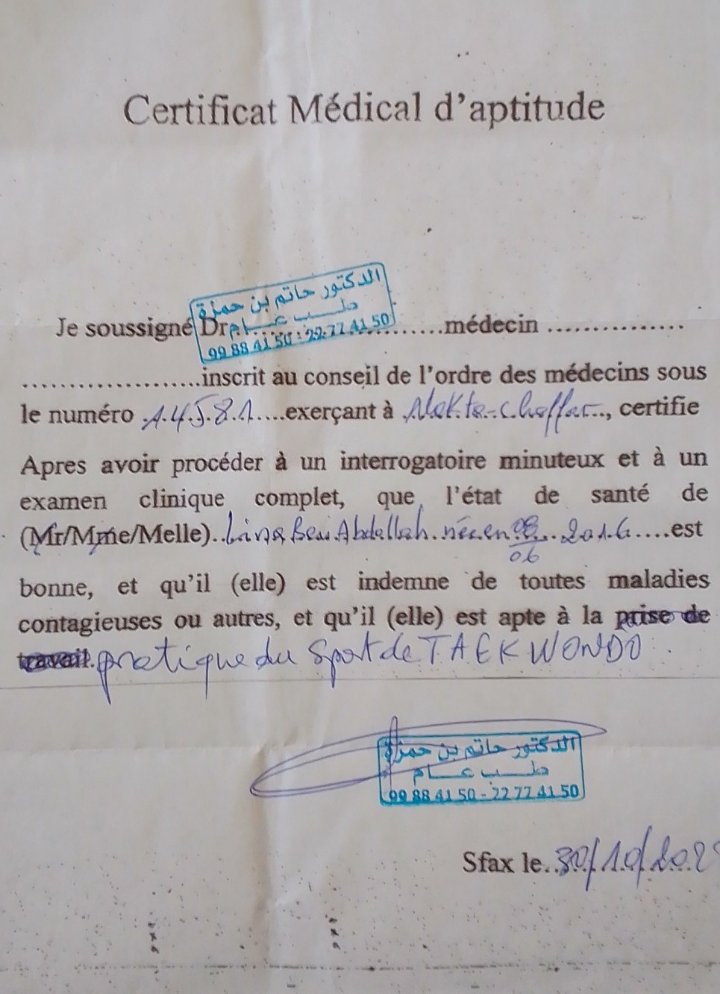 Certificat Médical d'aptitude
الدكتور حاتم بن حمزة
طب عام
99 88 41 50 - 22 77 41 50
Je soussigné Dr..............................médecin ................
.....................inscrit au conseil de l'ordre des médecins sous
le numéro 14581....exerçant à ..., certifie
Apres avoir procéder à un interrogatoire minuteux et à un
examen clinique complet, que l'état de santé de
(Mr/Mme/Melle)..Lina Ben Abdellah née en 08 2016....est
06
bonne, et qu'il (elle) est indemne de toutes maladies
contagieuses ou autres, et qu'il (elle) est apte à la prise de
travail. pratique du Sport de TAEKWONDO
الدكتور حاتم بن حمزة
طب عام
99 88 41 50 - 22 77 41 50
Sfax le..30/10/202